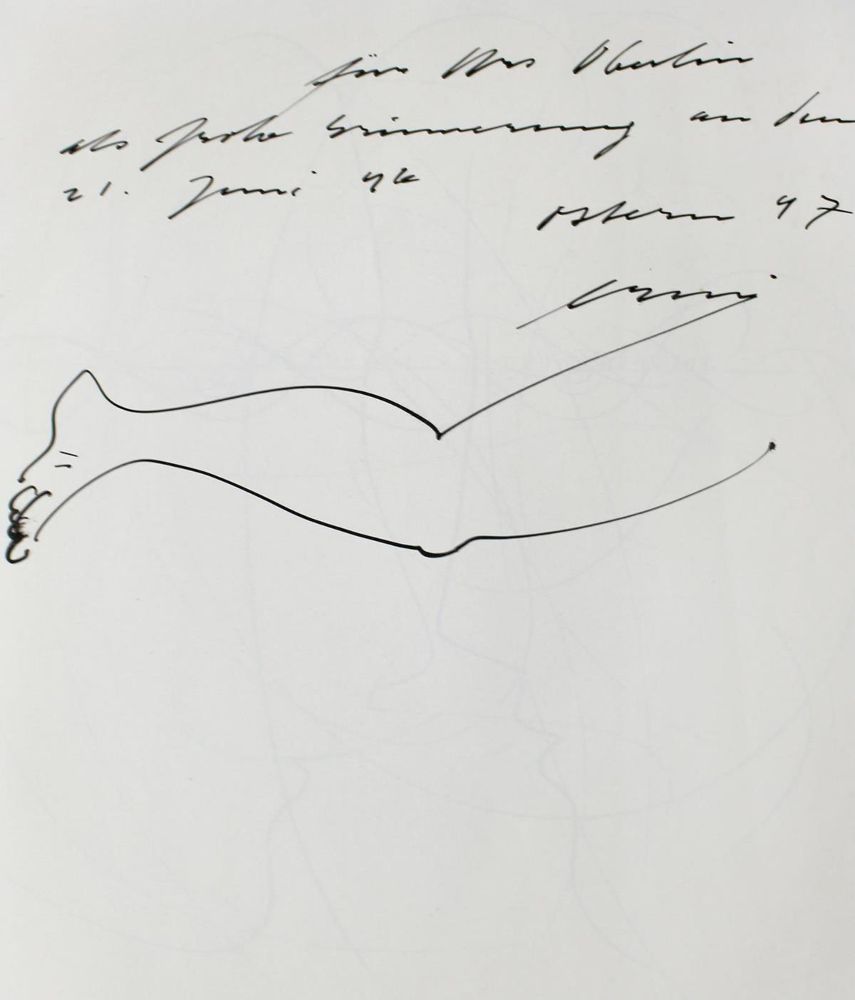 für Urs Oberlin
als frohe Erinnerung an den
21. Juni 46
Ostern 47
Erni